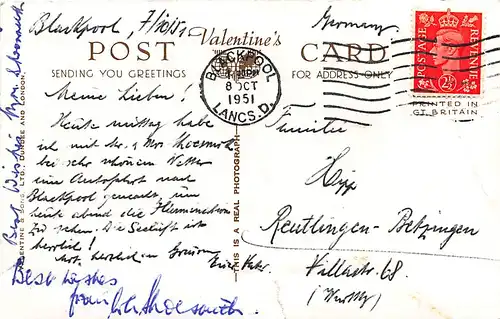 Blackpool, 7/10/51
Germany.
POST
Valentine's
CARD
SENDING YOU GREETINGS
FOR ADDRESS ONLY
BLACKPOOL
8 OCT
1951
LANCS. D.
POSTAGE
REVENUE
2½
PRINTED IN
GT. BRITAIN
Meine Lieben!
Heute mittag habe
ich mit Mr. & Mrs
bei sehr schönem Wetter
eine Autofahrt nach
Blackpool gemacht, um
heute abend die
zu sehen. Die Seeluft ist
herrlich!
herzlichen Grüssen
Best wishes
from
Best Wishes Mrs
VALENTINE & SONS LTD. DUNDEE AND LONDON.
THIS IS A REAL PHOTOGRAPH
Familie
Hipp
Reutlingen-Betzingen
68